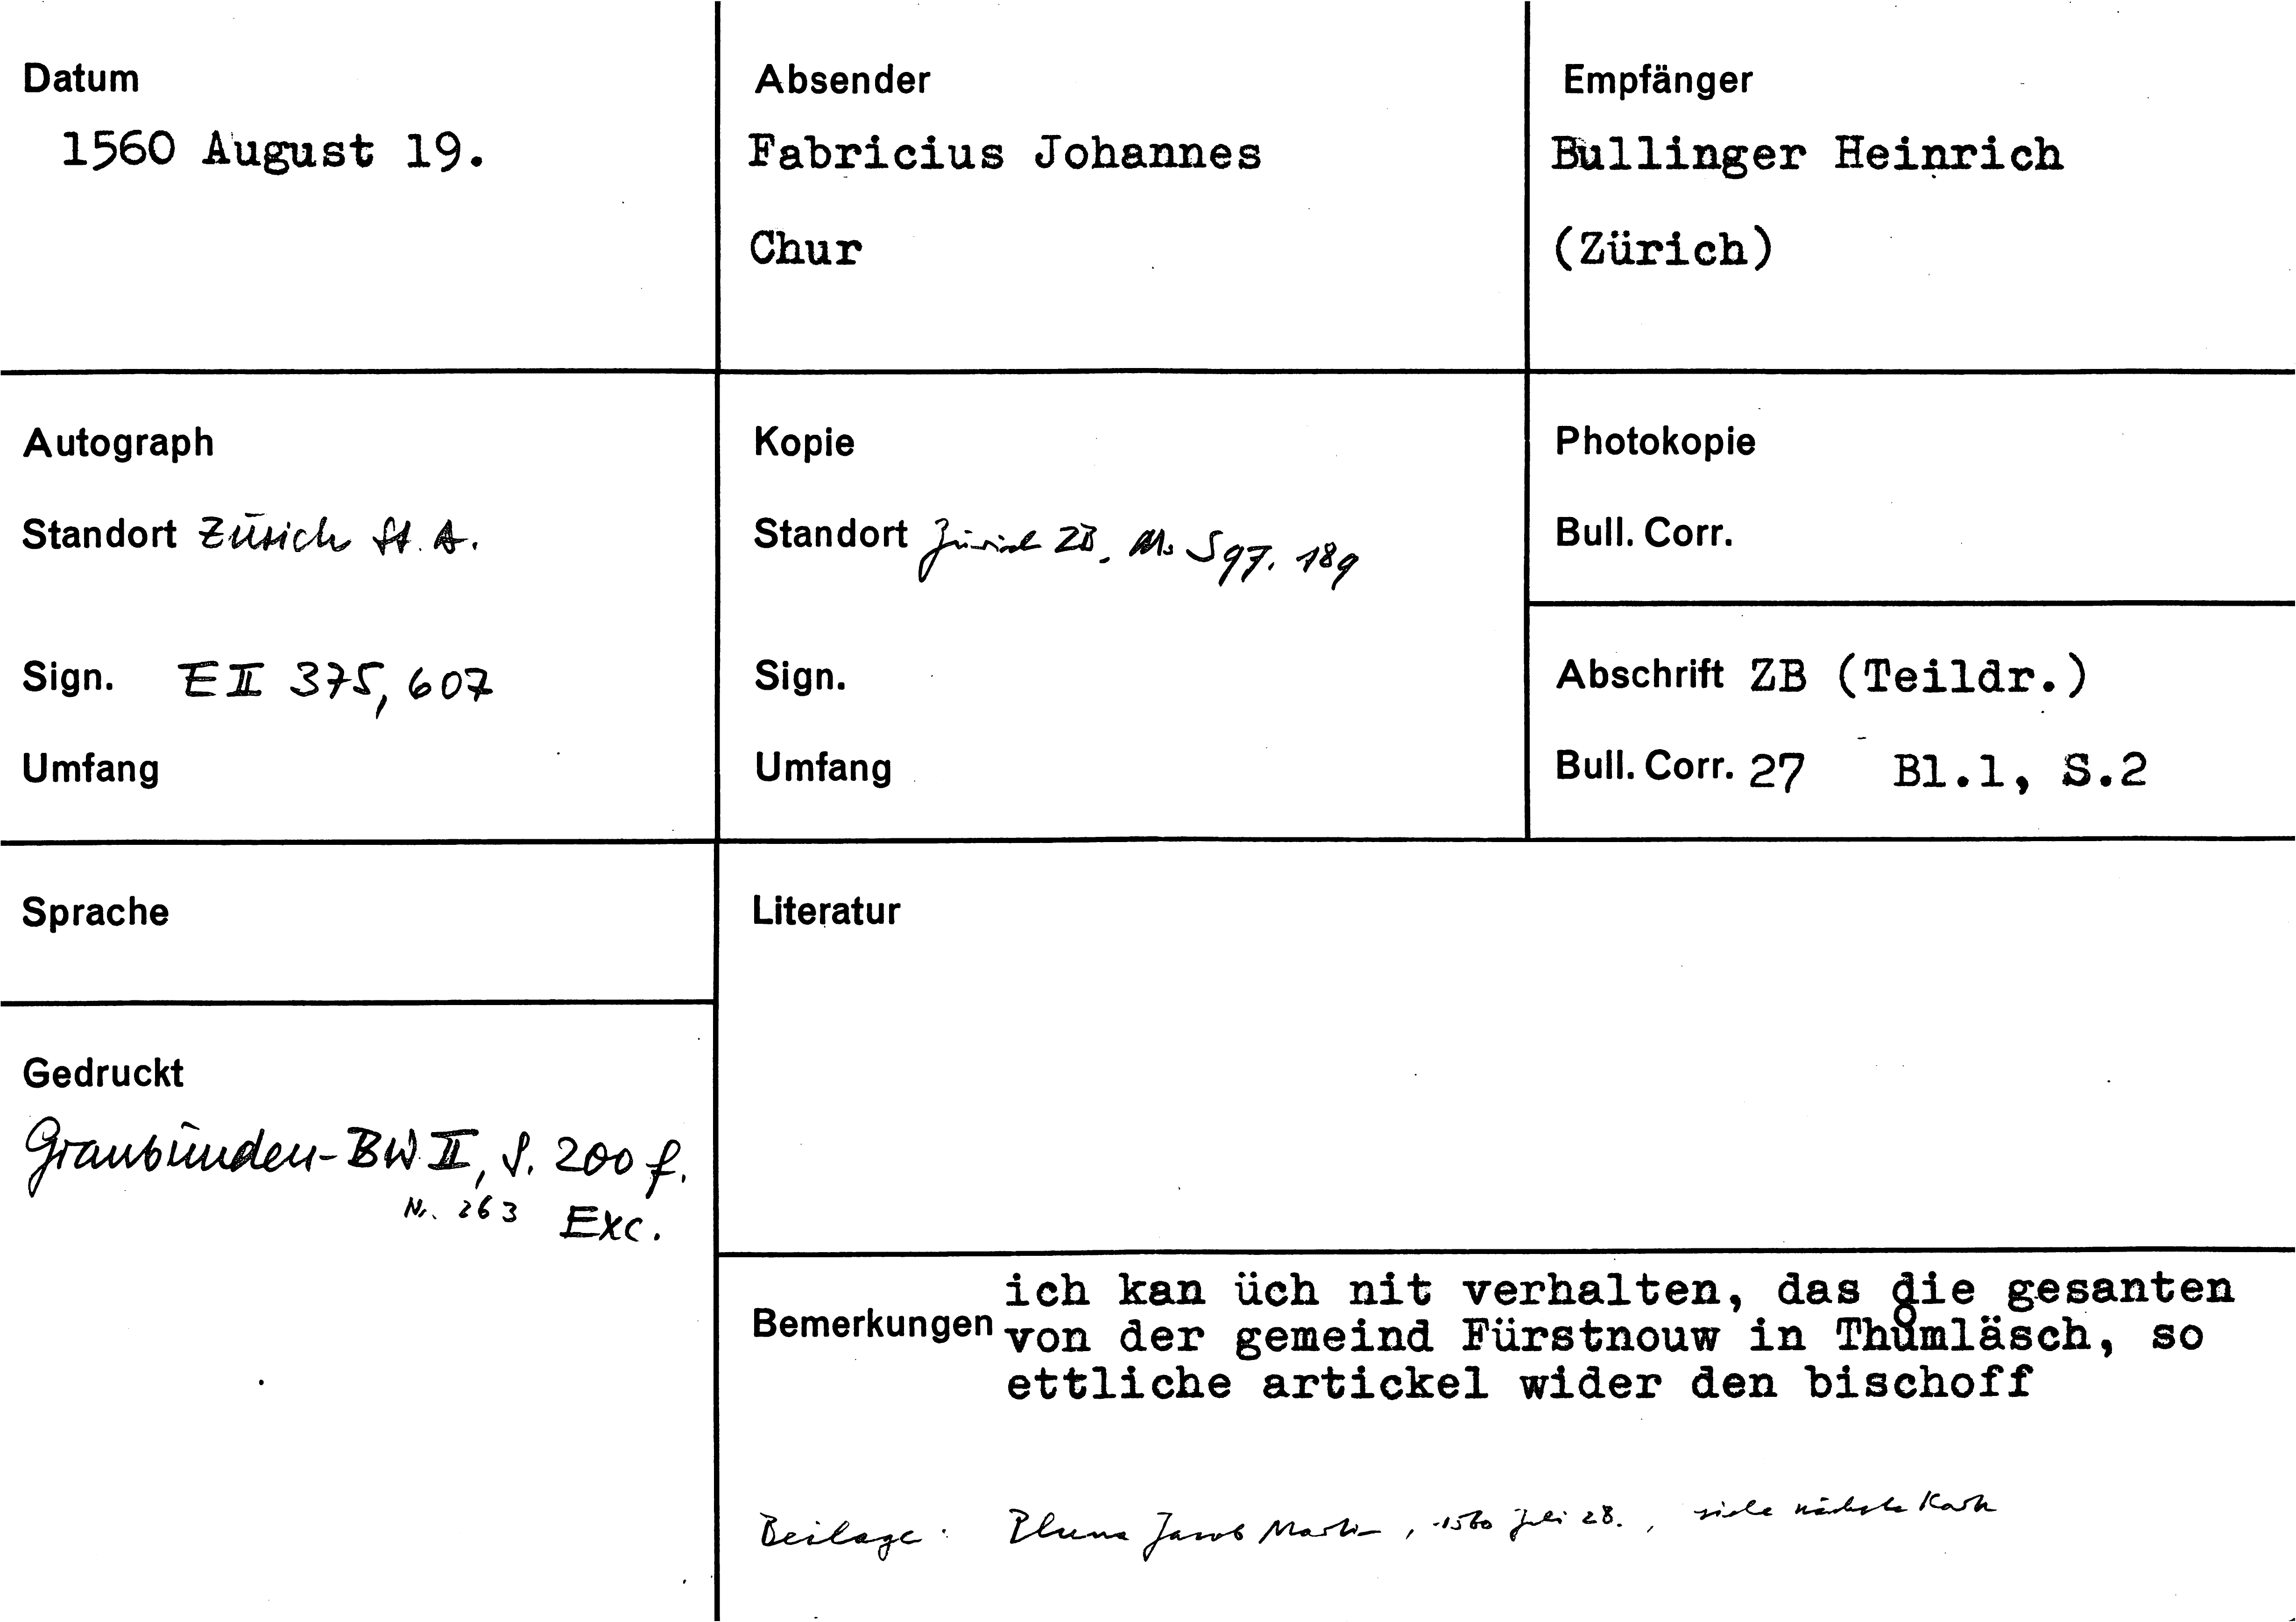 Datum
1560 August 19.
Absender
Fabricius Johannes
Chur
Empfänger
Bullinger Heinrich
(Zürich)
Autograph
Standort Zürich St. A.
Sign. E II 375, 607
Umfang
Kopie
Standort Zürich ZB. Ms S 97. 189
Sign.
Umfang
Photokopie
Bull. Corr.
Abschrift ZB (Teildr.)
Bull. Corr. 27 Bl.1, S.2
Sprache
Gedruckt
Graubünden-BW II, S. 200 f.
Nr. 263 Exc.
Literatur
Bemerkungen
ich kan üch nit verhalten, das die gesanten
von der gemeind Fürstnouw in Thůmläsch, so
ettliche artickel wider den bischoff
Beilage: Jacob Martin, 1560 Juli 28., siehe nächste Karte